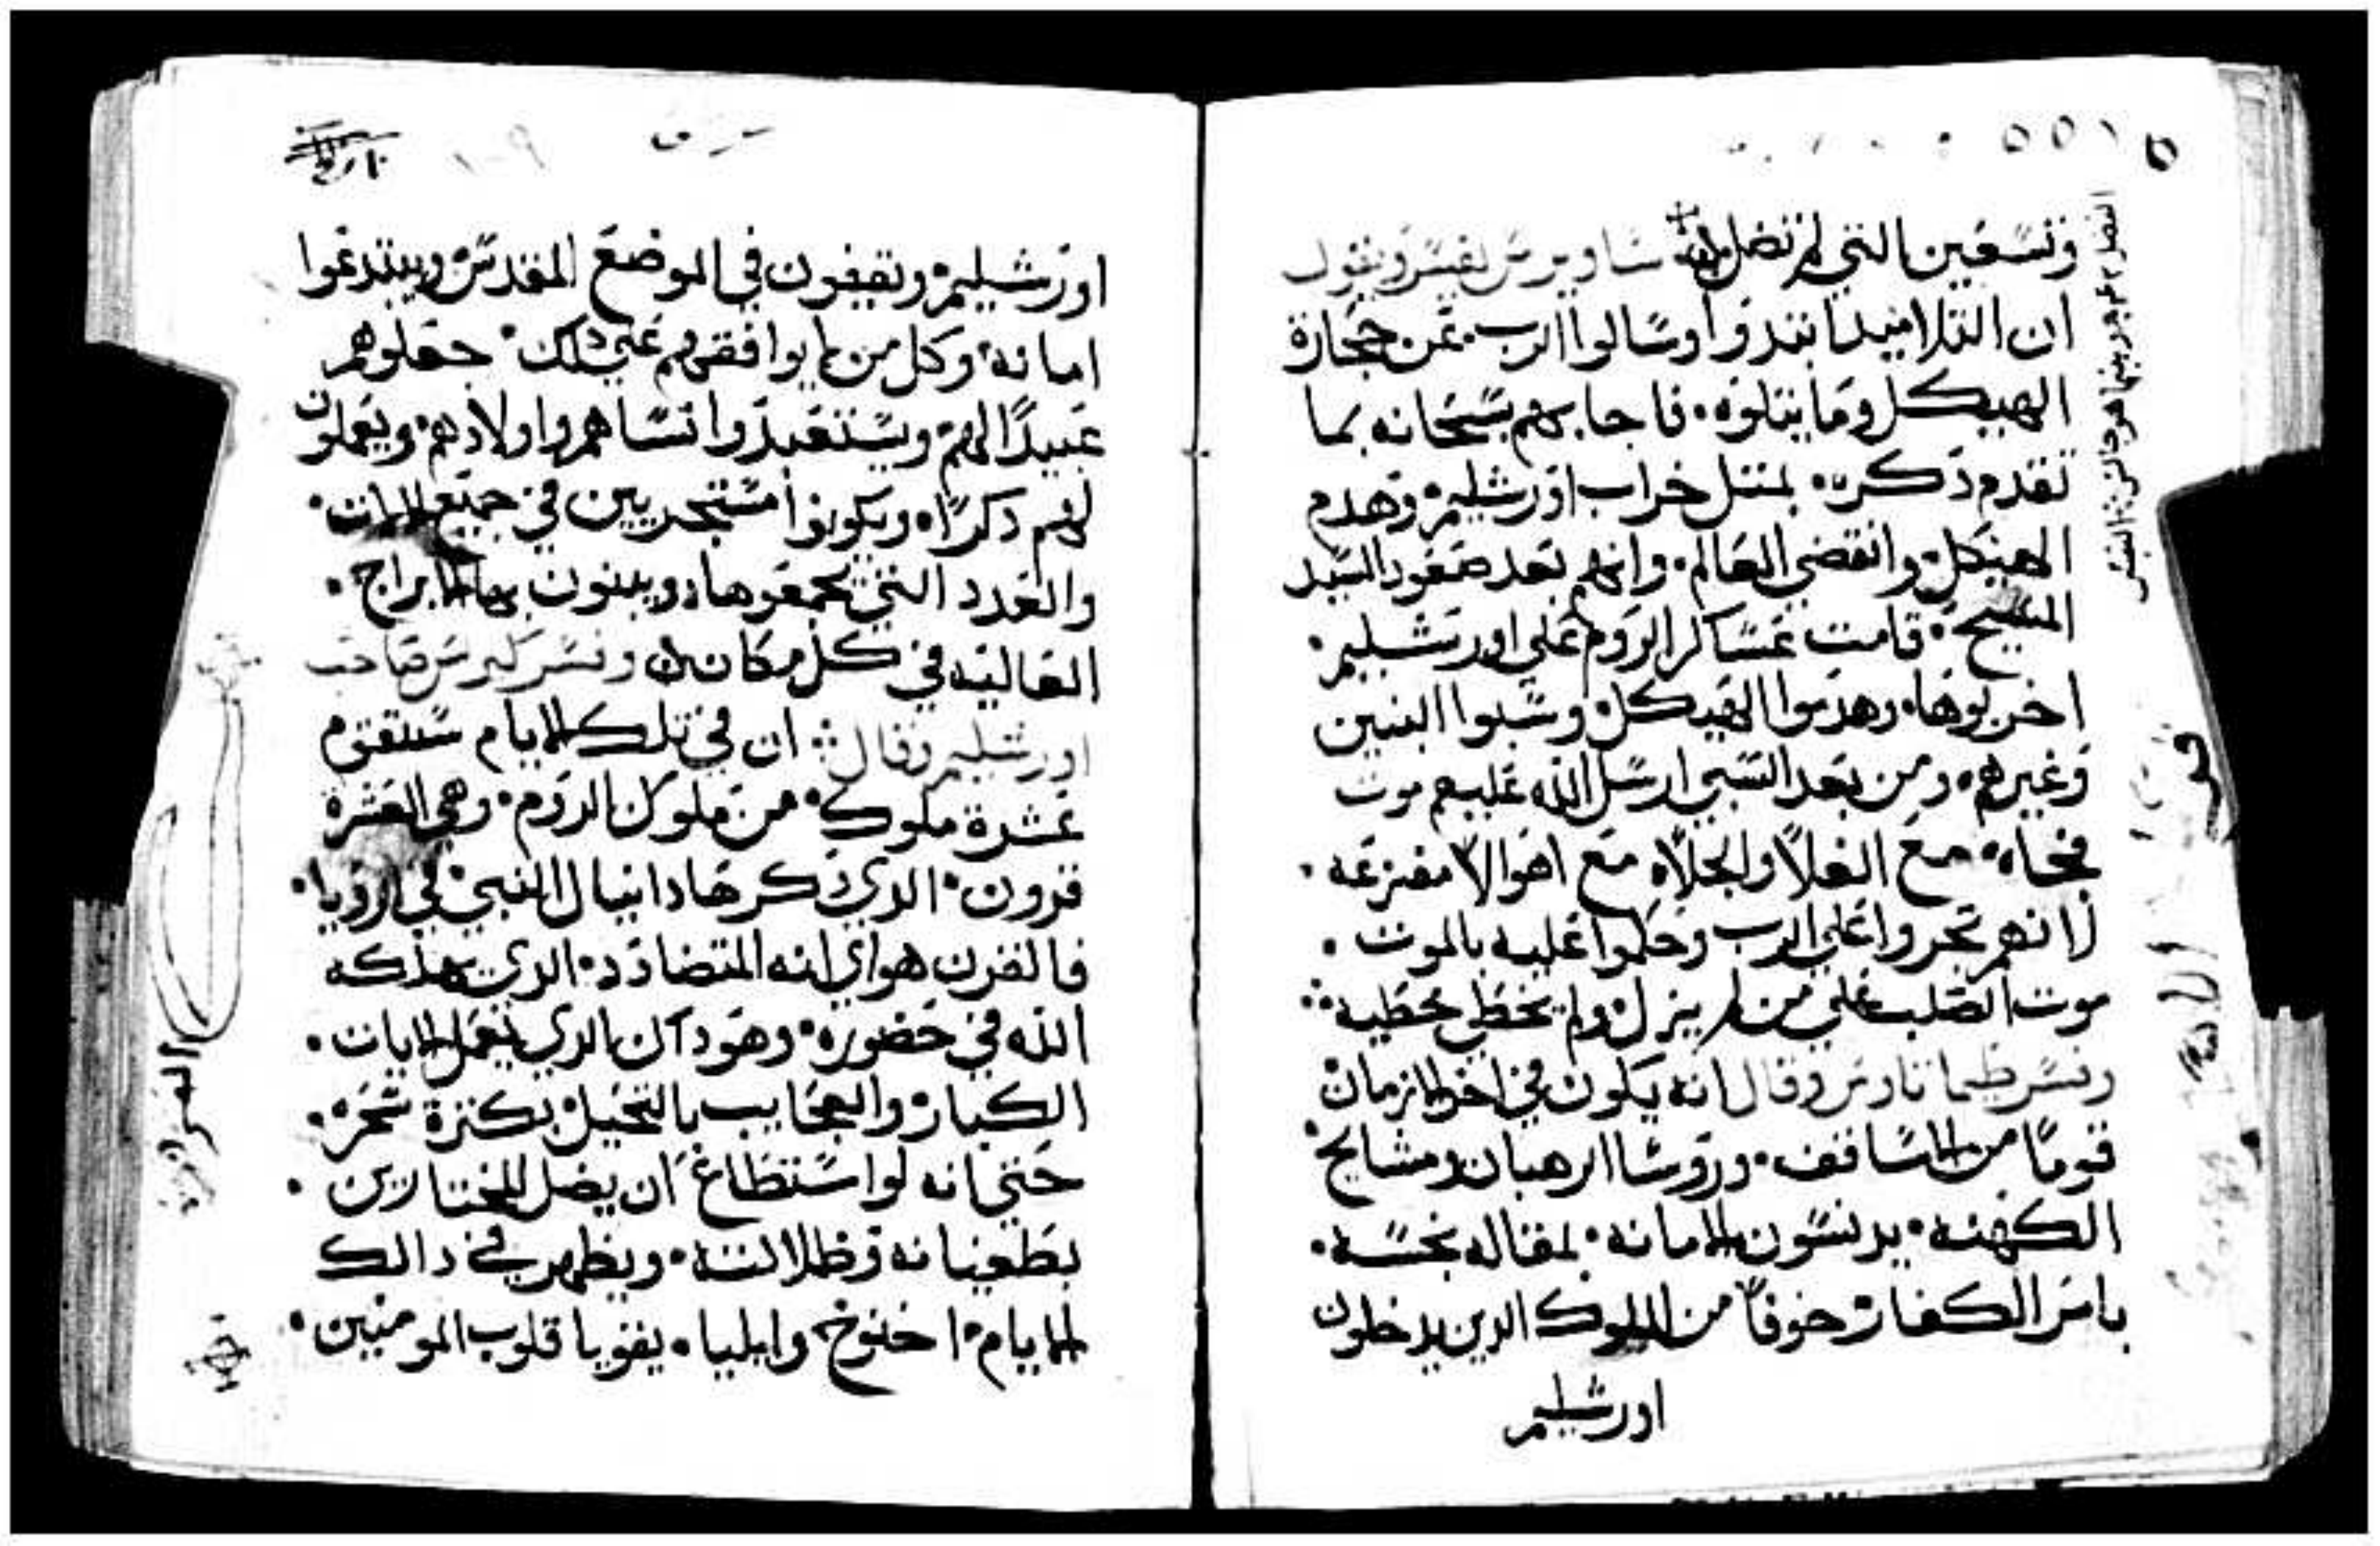 وتسعين التي لم تضل ساويرس يفسر ويقول
ان التلاميذ ابتدوا وسالوا الرب عن حجارة
الهيكل وما يتلوه فاجابهم سبحانه بما
تقدم ذكره بمثل خراب اورشليم وهدم
الهيكل وانقضي العالم وانهم بعد صعود السيد
المسيح قامت عساكر الروم علي اورشليم
اخربوها وهدموا الهيكل وسبوا البنين
وغيرهم ومن بعد السبي ارسل الله عليهم موت
فجاه مع الغلا والجلاه مع اهوالا مفزعه
لانهم تجروا علي الرب وحكموا عليه بالموت
موت الصلب علي من لم يزل ولم يخطي بخطيه
وفسر طيماتاوس وقال انه يكون في اخر الازمان
قوما من الاساقف وروسا الرهبان ومشايخ
الكهنه يدنسون الامانه بمقاله نجسه
بامر الكفار خوفا من الملوك الدين يدخلون
اورشليم
اورشليم وتقيفون في الموضع المقدس ويبتدعوا
امانه وكل من لم يوافقهم علي دلك جعلوهم
عبيدا لهم ويستعبدوا نساهم واولادهم ويعملون
لهم دكرا ويكونوا مستجريين في جميع
والعدد التي يجمعوها ويبنون بها الابراج
العاليه في كل مكان وفسر كيرلس صاحب
اورشليم وقال ان في تلك الايام ستقوم
عشرة ملوك من ملوك الروم وهي العشرة
قرون الدي دكرها دانيال النبي في الرويا
فالقرن هو اي انه المتضادد الدي يهلكه
الله في حضوره وهو داك الدي يعمل الايات
الكبار والعجايب بالتحيل بكثرة سحره
حتي انه لو استطاع ان يضل المختارين
بطغيانه وظلالته ويظهر في دالك
الايام اخنوخ وايليا يقويا قلوب المومنين